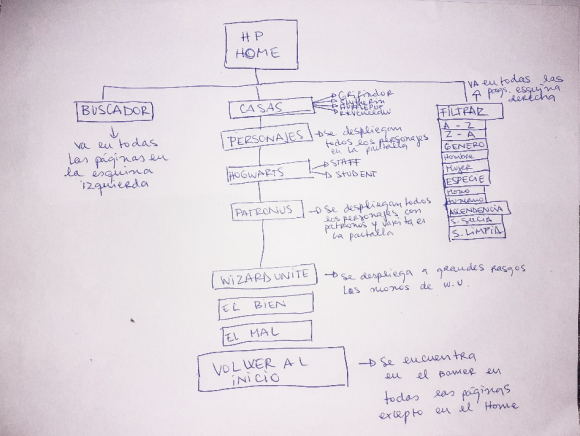 HP
HOME
BUSCADOR
va en todas
las páginas en
la esquina
izquierda
CASAS
PERSONAJES
Se despliegan
todos los personajes
en la pantalla
HOGWARTS
STAFF
STUDENT
PATRONUS
Se despliegan todos
los personajes con
patronus y varita en
la pantalla
WIZARD UNITE
Se despliega a grandes rasgos
los monos de W.U.
EL BIEN
EL MAL
VOLVER AL
INICIO
Se encuentra
en el Banner en
todas las páginas
excepto en el Home
va en todas las
pags. esquina
derecha
FILTRAR
A - Z
Z - A
GENERO
Hombre
Mujer
ESPECIE
Humano
ASCENDENCIA
S. SUCIA
S. LIMPIA